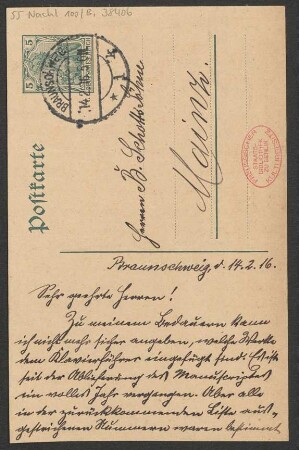 55 Nachl 100/B, 38406
5
5
BRAUNSCHWEIG
14.2.16
Postkarte
Herren B. Schotts Söhne
Mainz.
Braunschweig, d. 14.2.16.
Sehr geehrte Herren!
Zu meinem Bedauern kann
ich nicht mehr sicher angeben, welche Werke
dem Klavierführer eingefügt sind. Es ist
seit der Ablieferung des Manuscriptes
ein volles Jahr vergangen. Aber alle
in der zurückkommenden Liste aus-
gestrichenen Nummern waren bestimmt